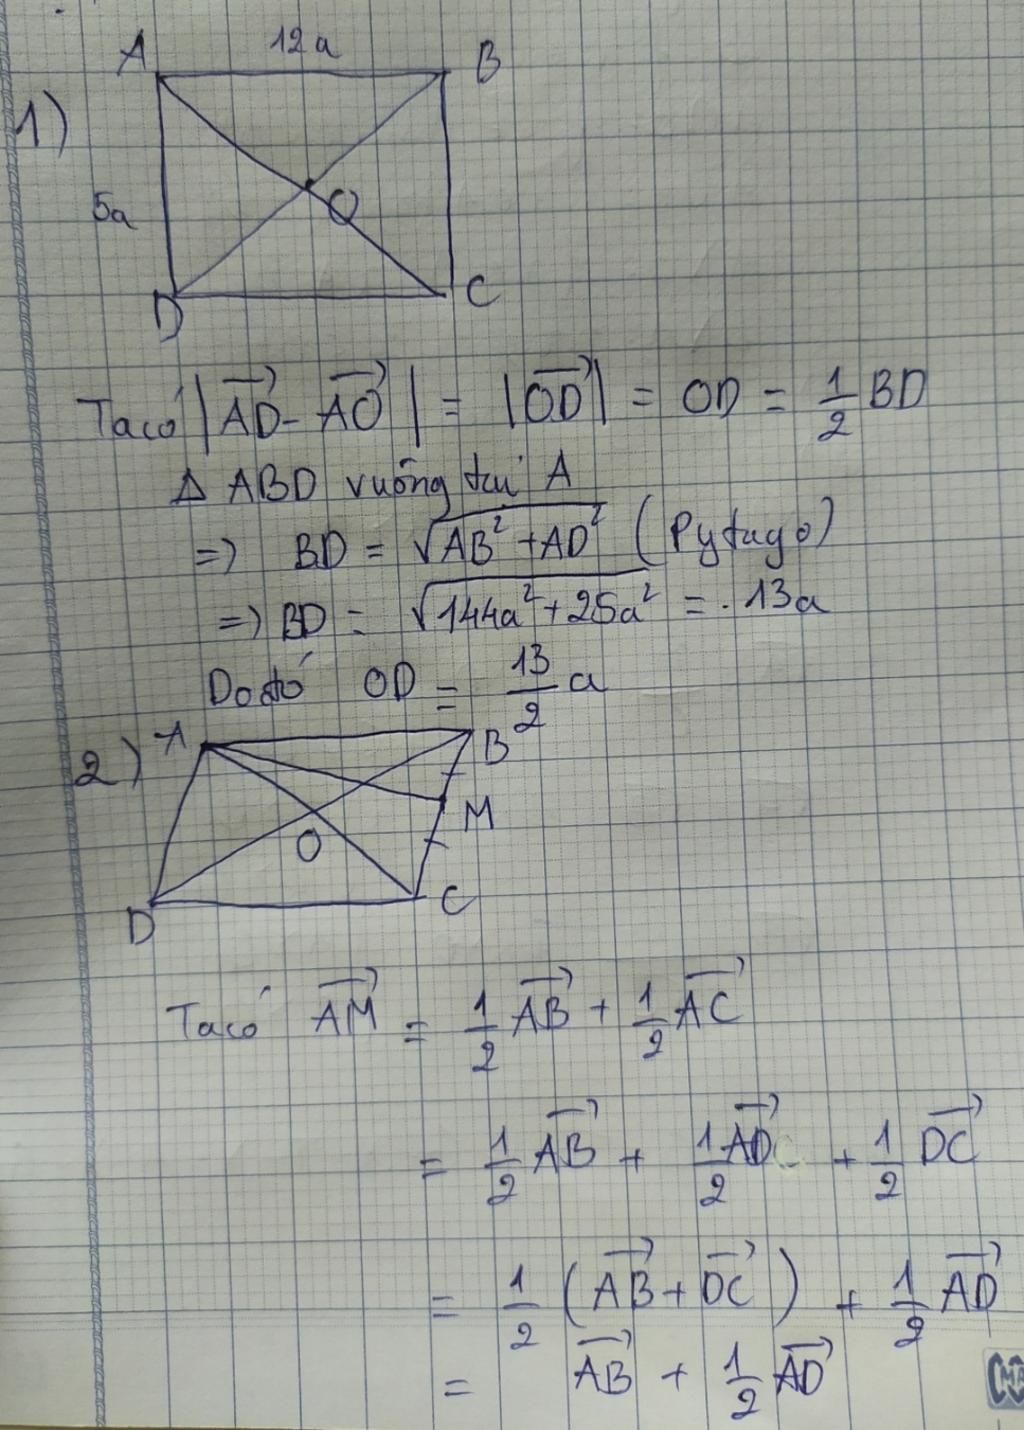 1)
A 12a B
5a
O
D C
Ta có |$\overrightarrow{AD}$ - $\overrightarrow{AO}$| = |$\overrightarrow{OD}$| = OD = $\frac{1}{2}$ BD
Δ ABD vuông tại A
=> BD = $\sqrt{AB^2 + AD^2}$ (Pytago)
=> BD = $\sqrt{144a^2 + 25a^2}$ = 13a
Do đó OD = $\frac{13}{2}$ a
2) A B
M
O
D C
Ta có $\overrightarrow{AM}$ = $\frac{1}{2}$ $\overrightarrow{AB}$ + $\frac{1}{2}$ $\overrightarrow{AC}$
= $\frac{1}{2}$ $\overrightarrow{AB}$ + $\frac{1}{2}$ $\overrightarrow{AD}$ + $\frac{1}{2}$ $\overrightarrow{DC}$
= $\frac{1}{2}$ ($\overrightarrow{AB}$ + $\overrightarrow{DC}$) + $\frac{1}{2}$ $\overrightarrow{AD}$
= $\overrightarrow{AB}$ + $\frac{1}{2}$ $\overrightarrow{AD}$